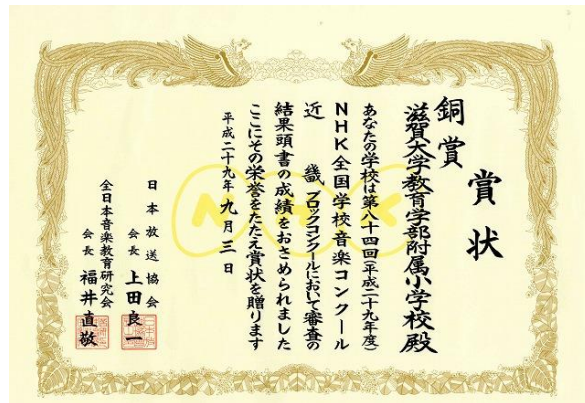 賞状
銅賞
滋賀大学教育学部附属小学校殿
あなたの学校は第八十四回(平成二十九年度)
NHK全国学校音楽コンクール
近畿ブロックコンクールにおいて審査の
結果頭書の成績をおさめられました
ここにその栄誉をたたえ賞状を贈ります
平成二十九年九月三日
日本放送協会
会長 上田良一
全日本音楽教育研究会
会長 福井直敬
NHK